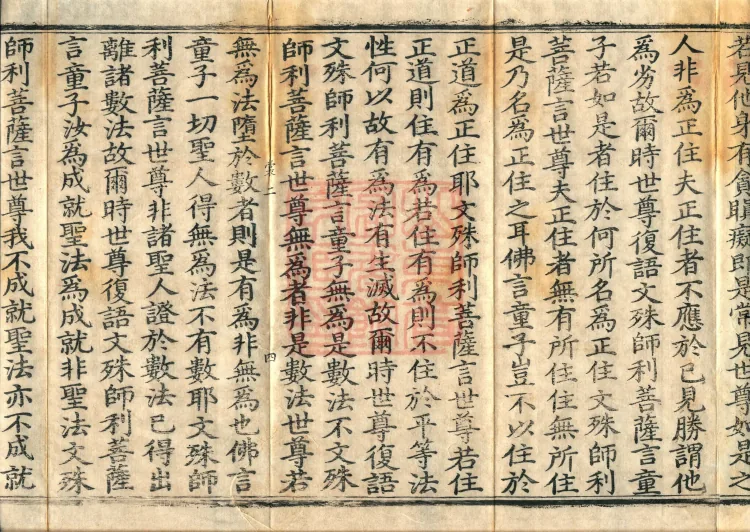 若見他身有貪瞋癡即是常見世尊如是之
人非為正住夫正住者不應於己見勝謂他
為劣故爾時世尊復語文殊師利菩薩言童
子若如是者住於何所名為正住文殊師利
菩薩言世尊夫正住者無有所住住無所住
是乃名為正住之耳佛言童子豈不以住於
正道為正住耶文殊師利菩薩言世尊若住
正道則住有為若住有為則不住於平等法
性何以故有為法有生滅故爾時世尊復語
文殊師利菩薩言童子無為是數法不文殊
師利菩薩言世尊無為者非是數法世尊若
裳二 四
無為法墮於數者則是有為非無為也佛言
童子一切聖人得無為法不有數耶文殊師
利菩薩言世尊非諸聖人證於數法已得出
離諸數法故爾時世尊復語文殊師利菩薩
言童子汝為成就聖法為成就非聖法文殊
師利菩薩言世尊我不成就聖法亦不成就